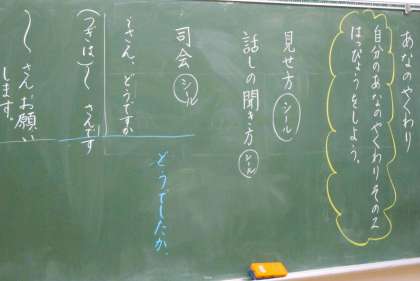 あなのやくわり
自分のあなのやくわりその2
はっぴょうをしよう。
見せ方 シール
話しの聞き方 シール
司会 シール
〜さん、どうですか
どうでしたか。
(つぎは)〜さんです
〜さん、お願い
します。